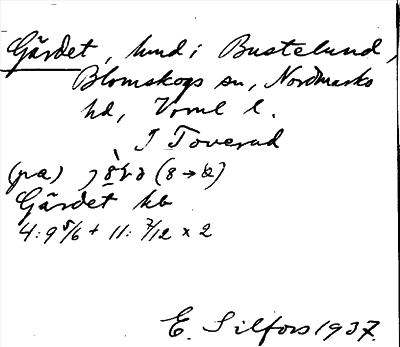 Gärdet, lund i Bustelund,
Blomskogs sn, Nordmarks
hd, Vrml l.
I Toverud
(på)
Gärdet kb
4:9 5/6 + 11: 7/12 x 2
E. Silfors 1937.